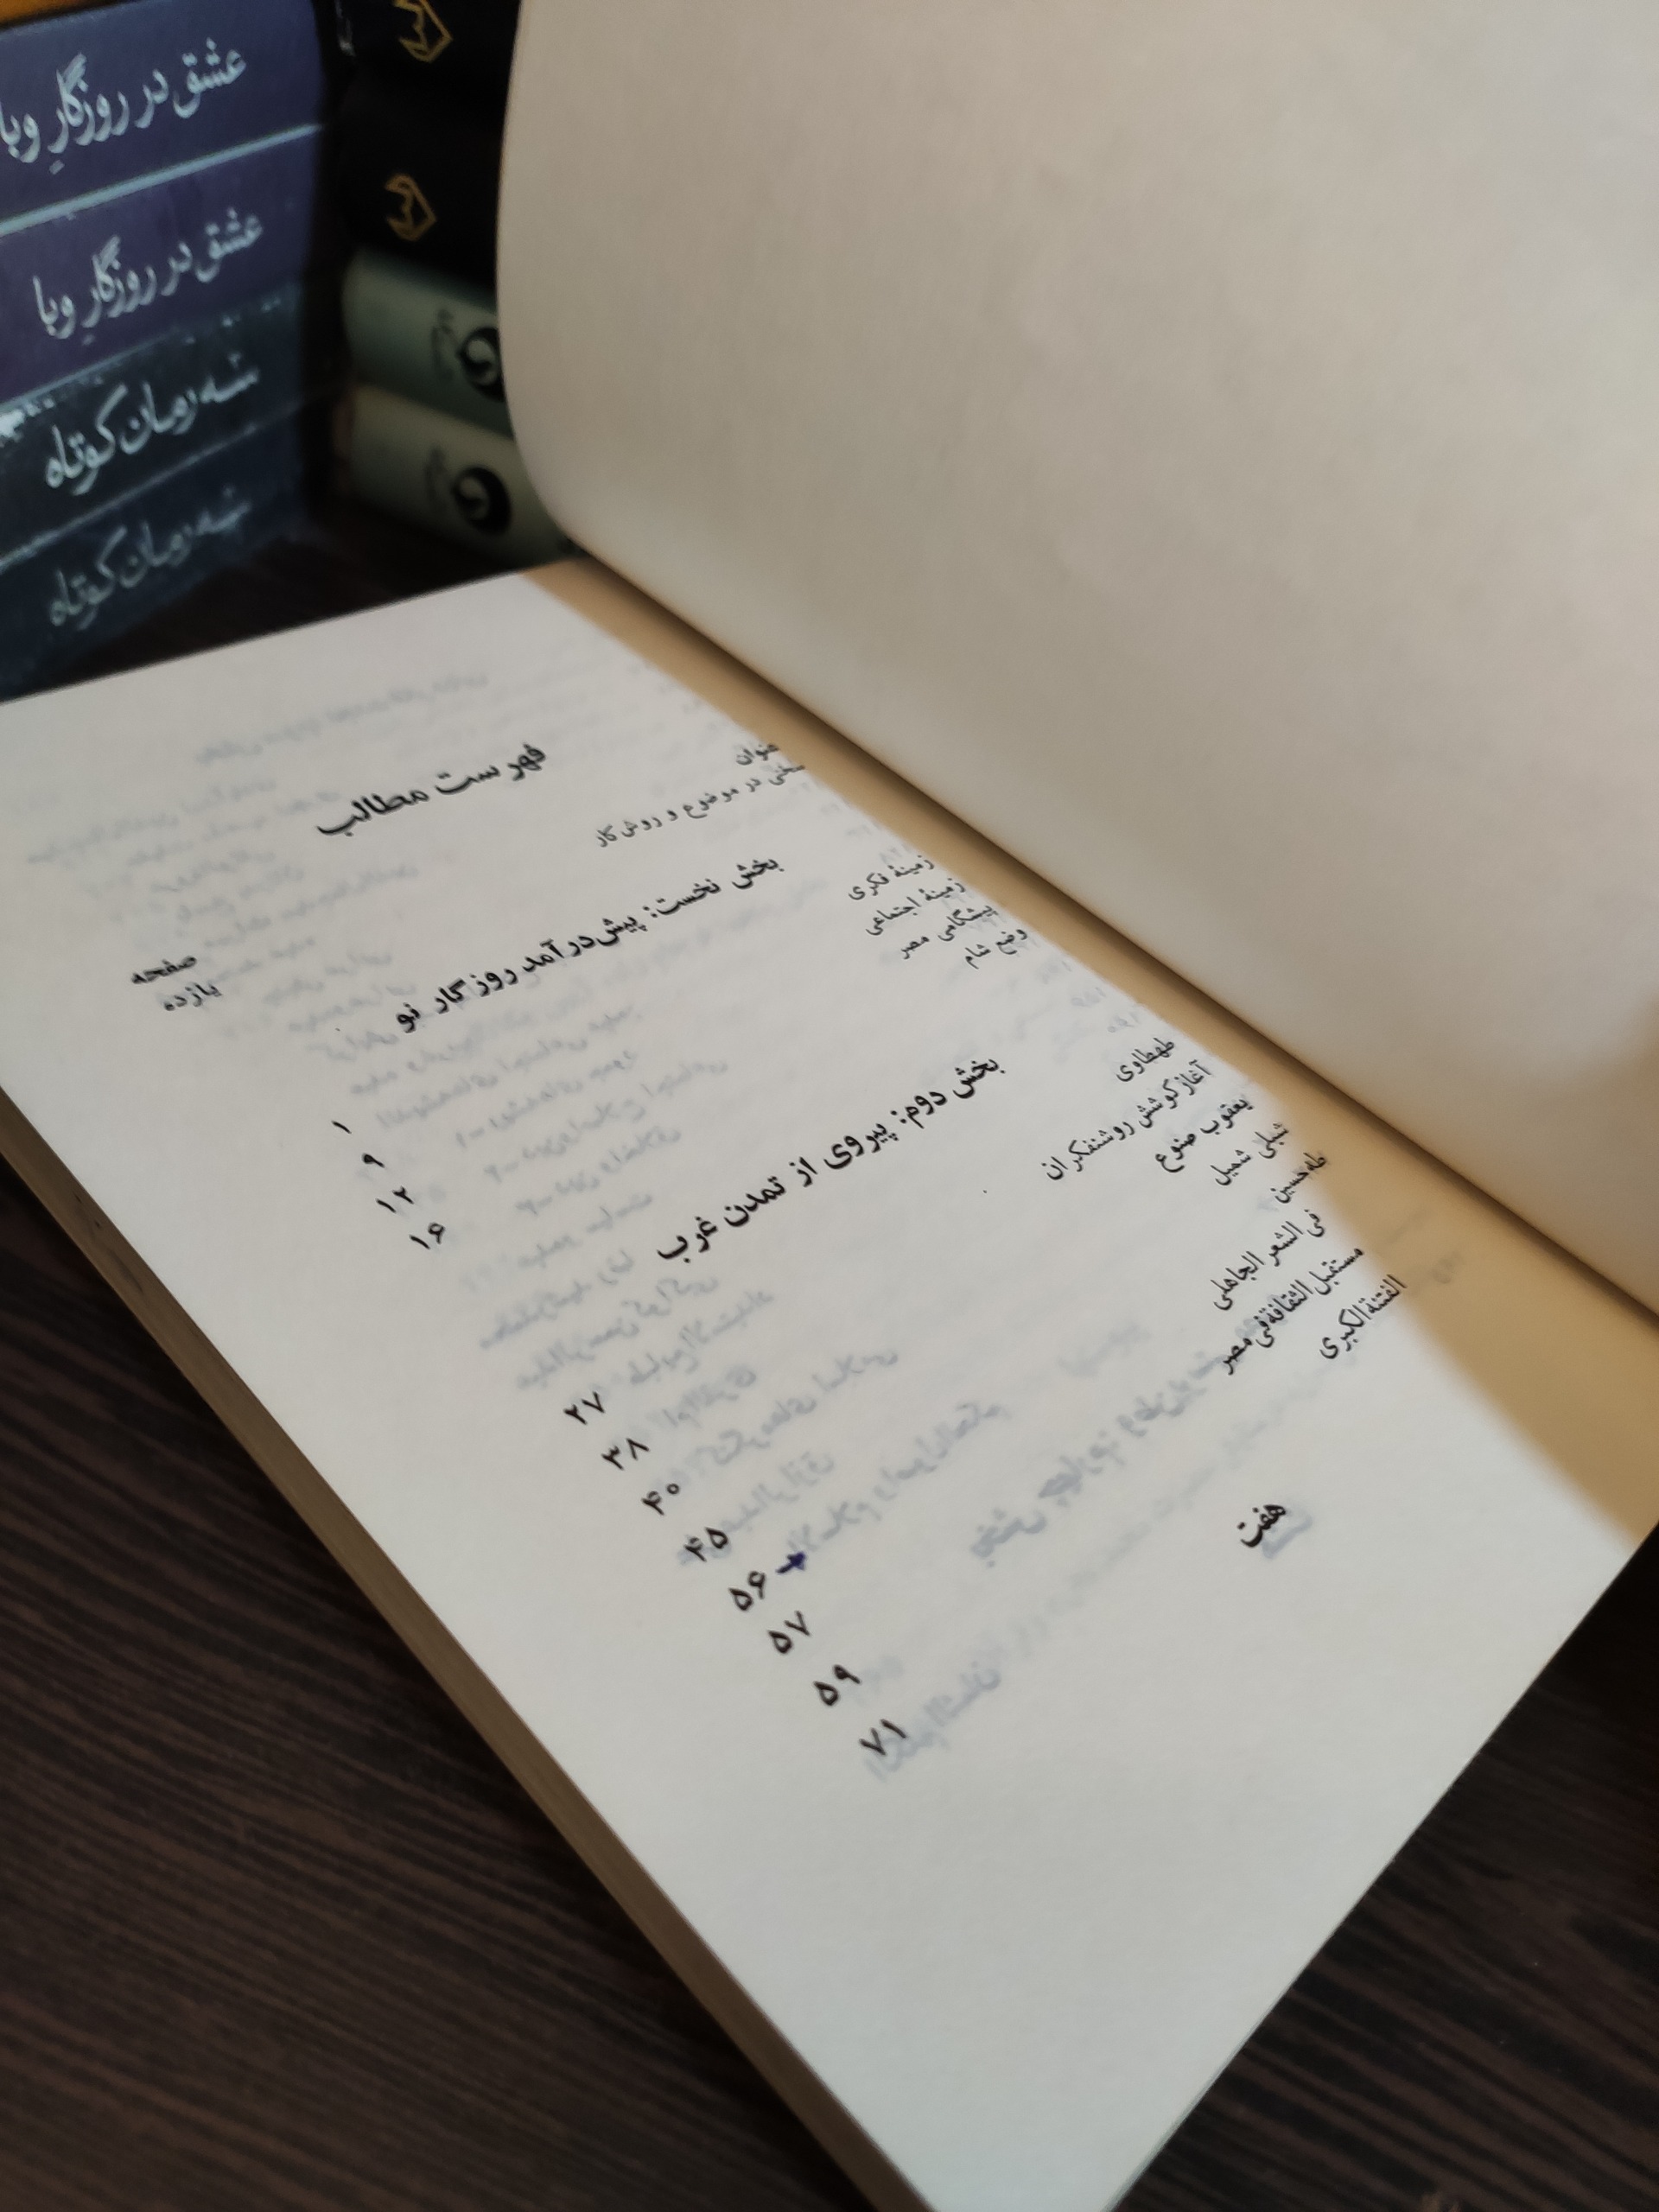 عشق در روزگارِ وبا
عشق در روزگارِ وبا
سه رمان کوتاه
سه رمان کوتاه
فهرست مطالب
عنوان صفحه
سخنی در موضوع و روش کار یازده
بخش نخست: پیش‌درآمد روزگار نو
زمینهٔ فکری ۱
زمینهٔ اجتماعی ۹
پیشگامی مصر ۱۲
وضع شام ۱۶
بخش دوم: پیروی از تمدن غرب
طهطاوی ۲۷
آغاز کوشش روشنفکران ۳۸
یعقوب صنوع ۴۰
شبلی شمیل ۴۵
طه‌حسین ۵۶
فی الشعر الجاهلی ۵۷
مستقبل الثقافة فی مصر ۵۹
الفتنة الکبری ۷۱
هفت